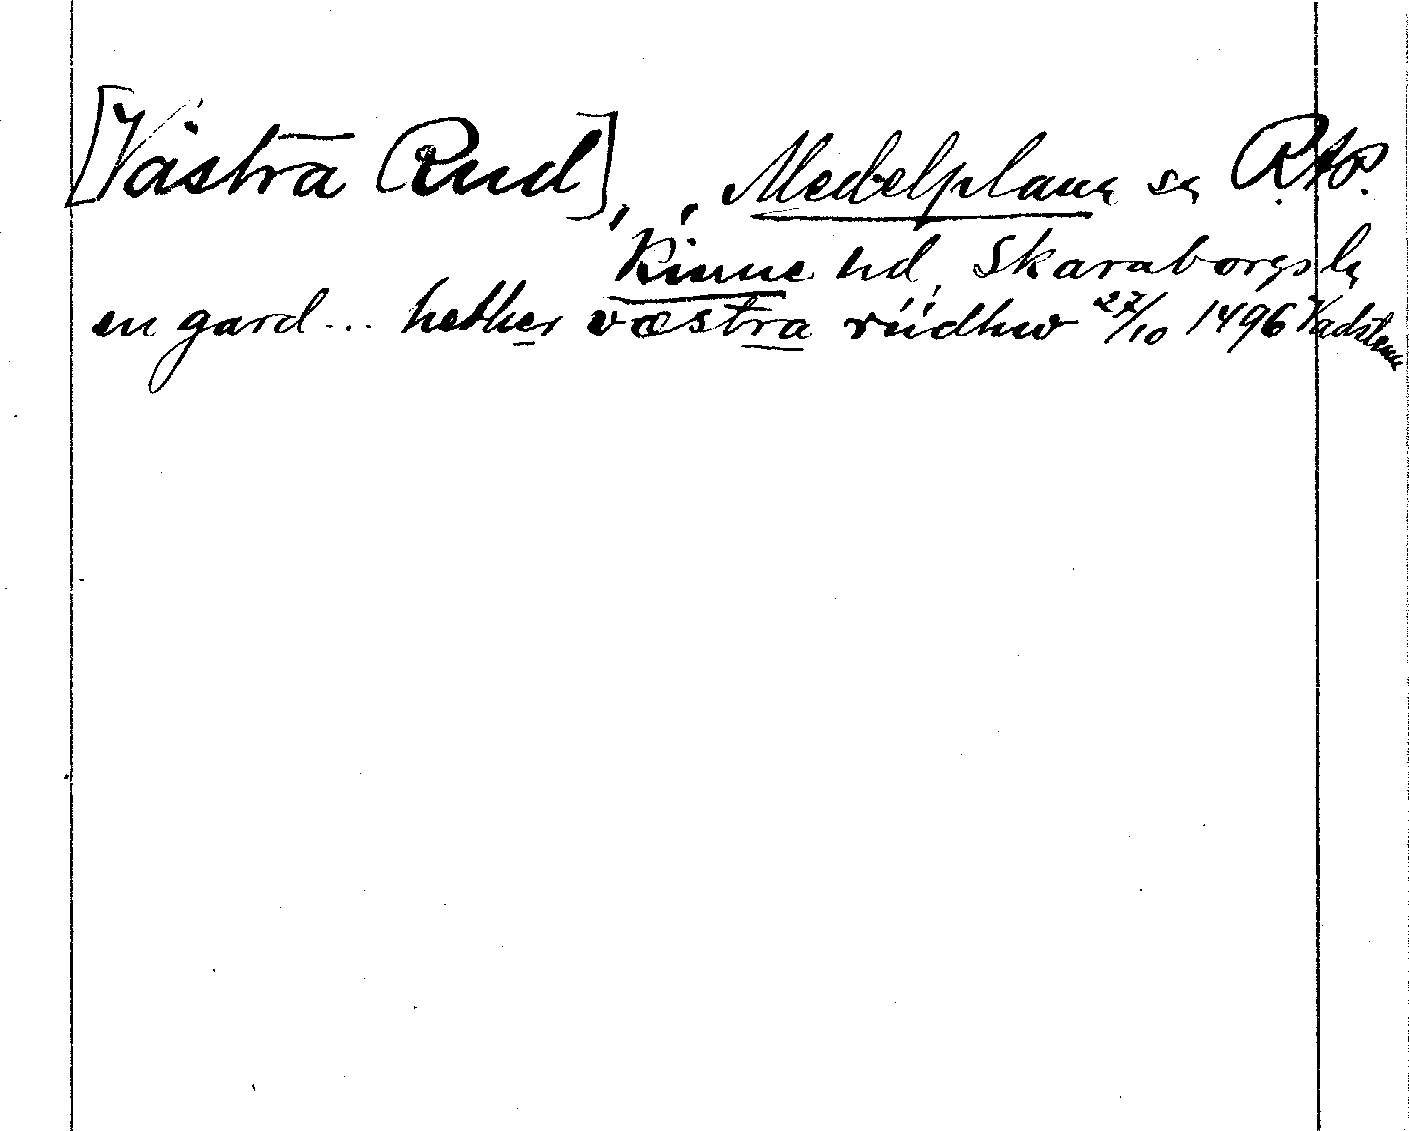 [Västra Rud], , Medelplana sn RAp.
Kinne hd, Skaraborgs län
en gard... hether væstra rúdhw 27/10 1496 Vadstena